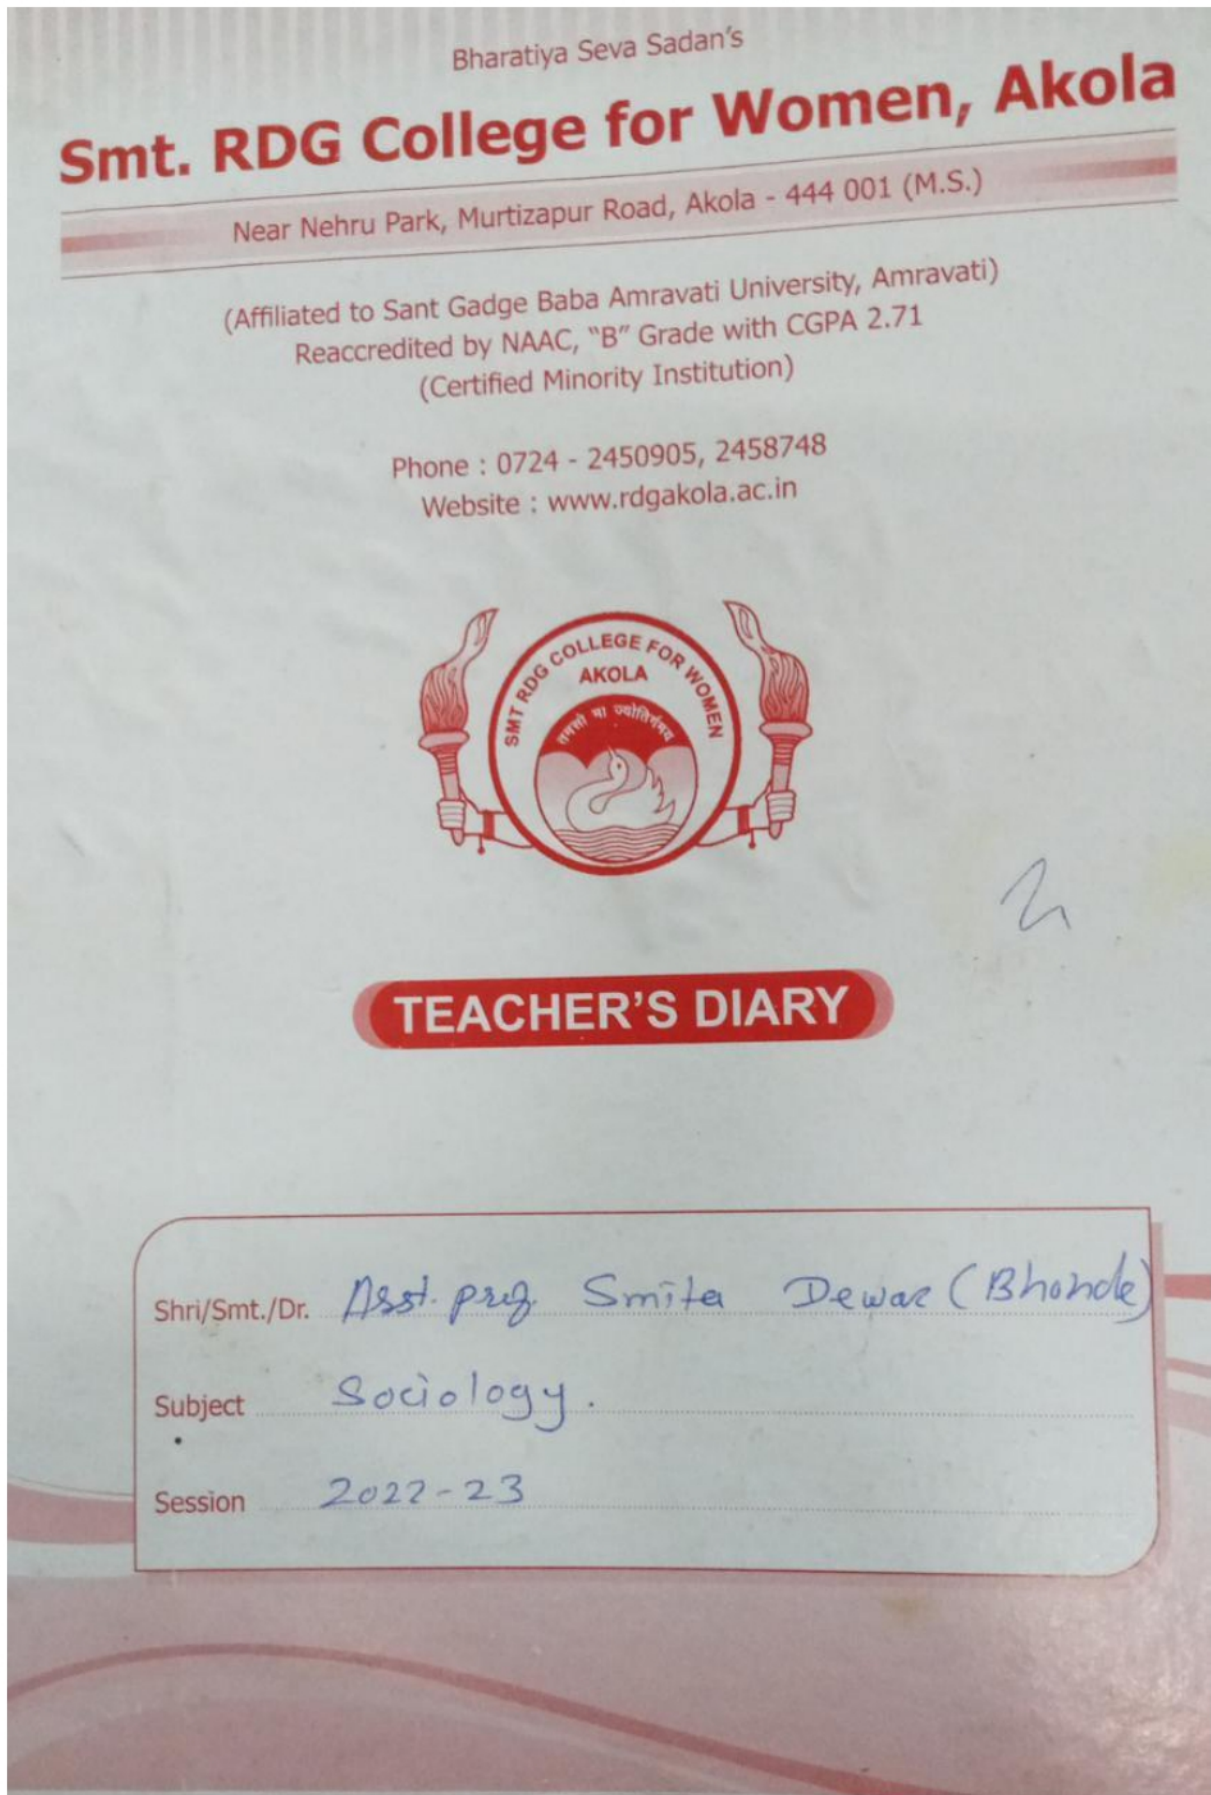 Bharatiya Seva Sadan's
Smt. RDG College for Women, Akola
Near Nehru Park, Murtizapur Road, Akola - 444 001 (M.S.)
(Affiliated to Sant Gadge Baba Amravati University, Amravati)
Reaccredited by NAAC, "B" Grade with CGPA 2.71
(Certified Minority Institution)
Phone : 0724 - 2450905, 2458748
Website : www.rdgakola.ac.in
SMT RDG COLLEGE FOR WOMEN
AKOLA
तमसो मा ज्योतिर्गमय
TEACHER'S DIARY
Shri/Smt./Dr. Asst. prof. Smita Dewar (Bhonde)
Subject Sociology.
Session 2022-23